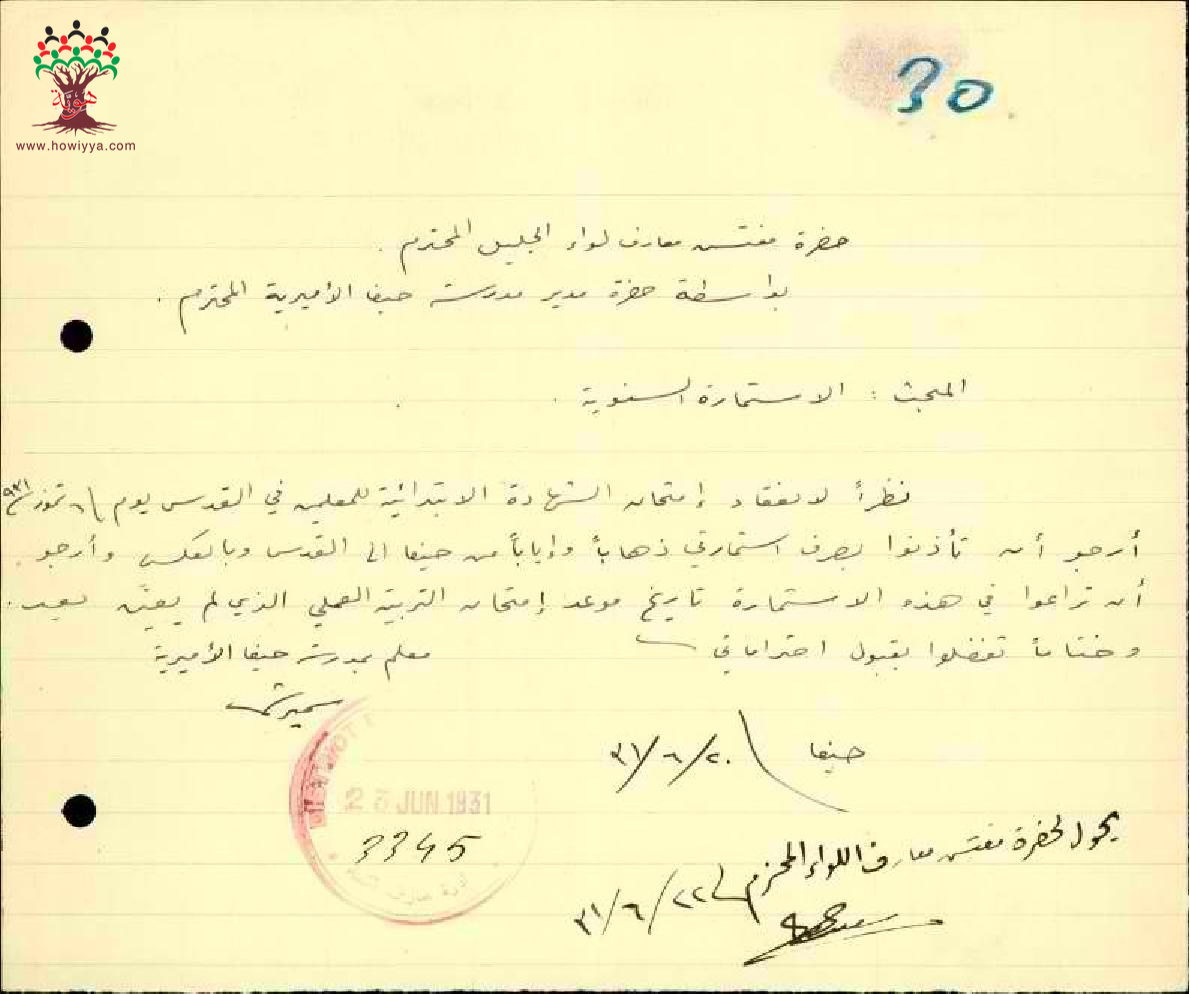 هوية
www.howiyya.com
30
حضرة مفتش معارف لواء الجليل المحترم .
بواسطة حضرة مدير مدرسة حيفا الأميرية المحترم .
المبحث : الاستمارة السنوية .
نظراً لانعقاد إمتحان الشهادة الابتدائية للمعلمين في القدس يوم ٦ تموز ٩٣١
أرجو أن تأذنوا بصرف استمارتي ذهاباً وإياباً من حيفا الى القدس وبالعكس وأرجو
أن تراعوا في هذه الاستمارة تاريخ موعد إمتحان التربية العملي الذي لم يعيَّن بعد .
وختاماً تفضلوا بقبول احتراماتي
معلم بمدرسة حيفا الأميرية
حيفا ٢٠/٦/٣١
23 JUN 1931
3345
يحول لحضرة مفتش معارف اللواء المحترم
٢٢/٦/٣١